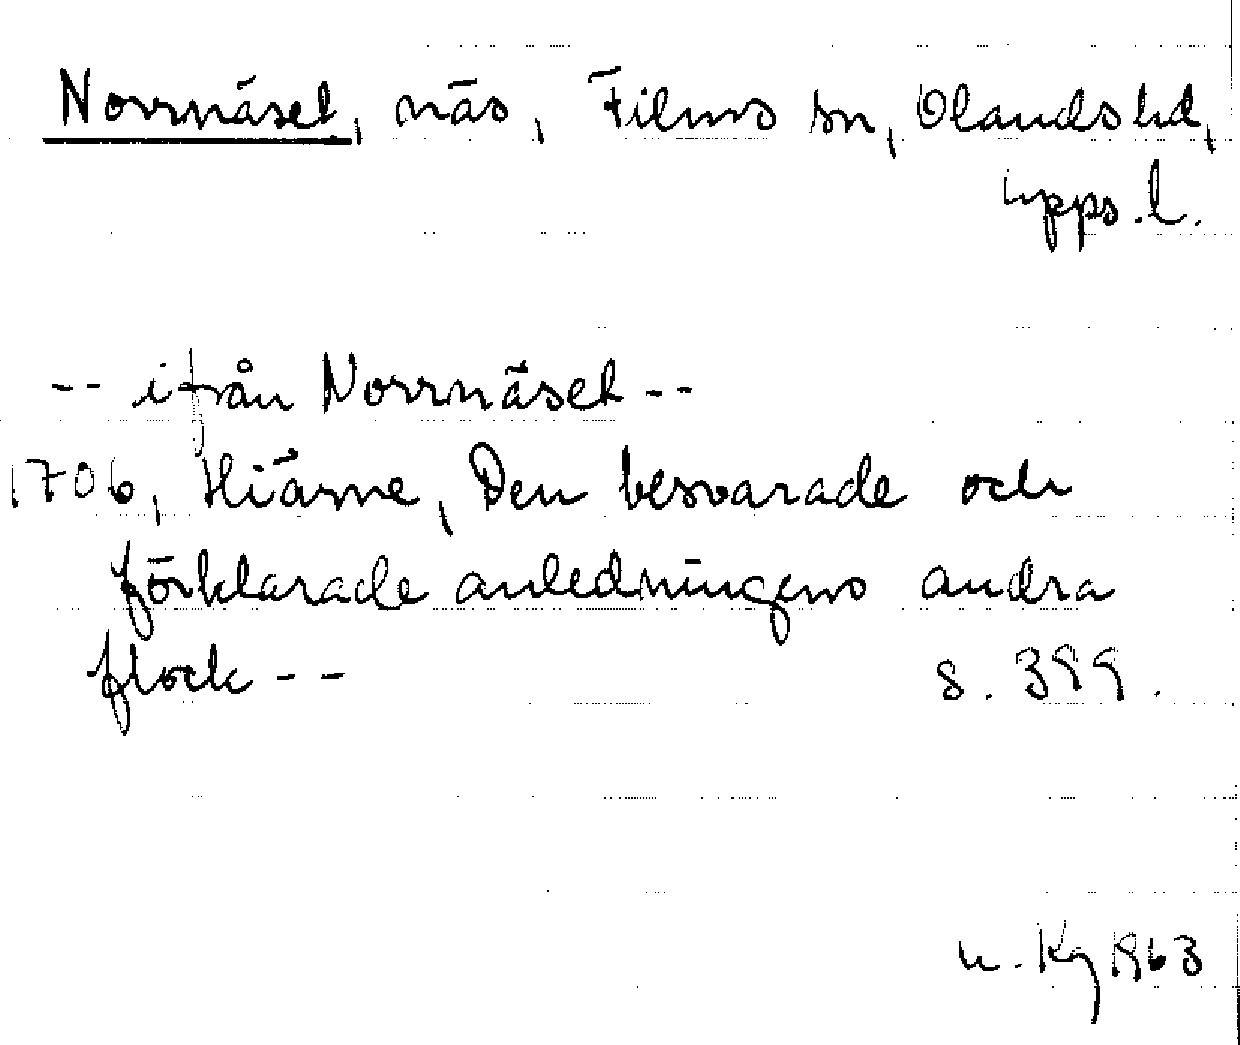 Norrnäset, näs, Films sn, Olands hd,
Upps. l.
-- ifrån Norrnäset --
1706, Hiärne, Den besvarade och
förklarade anledningens andra
flock -- s. 399.
u. Kg 1963